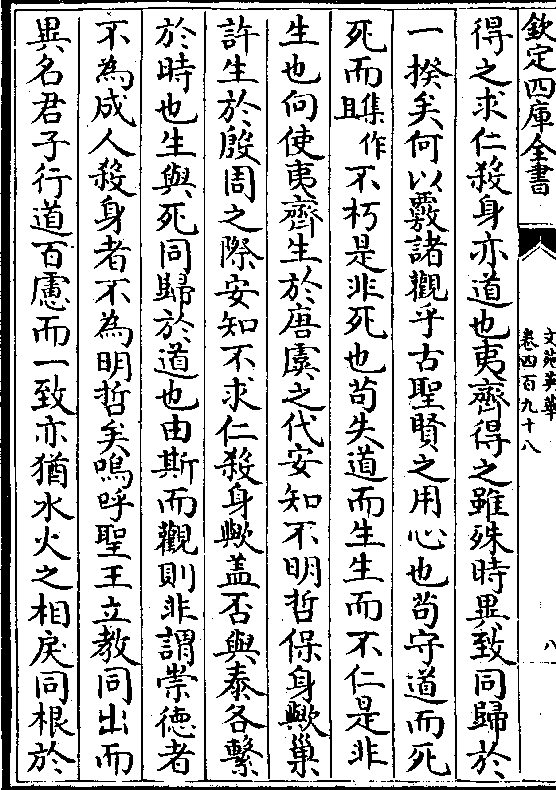 欽定四庫全書
文苑英華
卷四百九十八
八
得之求仁殺身亦道也夷齊得之雖殊時異致同歸於
一揆矣何以覈諸觀乎古聖賢之用心也苟守道而死
死而且集作不朽是非死也苟失道而生生而不仁是非
生也向使夷齊生於唐虞之代安知不明哲保身歟巢
許生於殷周之際安知不求仁殺身歟盖否與泰各繫
於時也生與死同歸於道也由斯而觀則非謂崇德者
不為成人殺身者不為明哲矣嗚呼聖王立教同出而
異名君子行道百慮而一致亦猶水火之相戾同根於